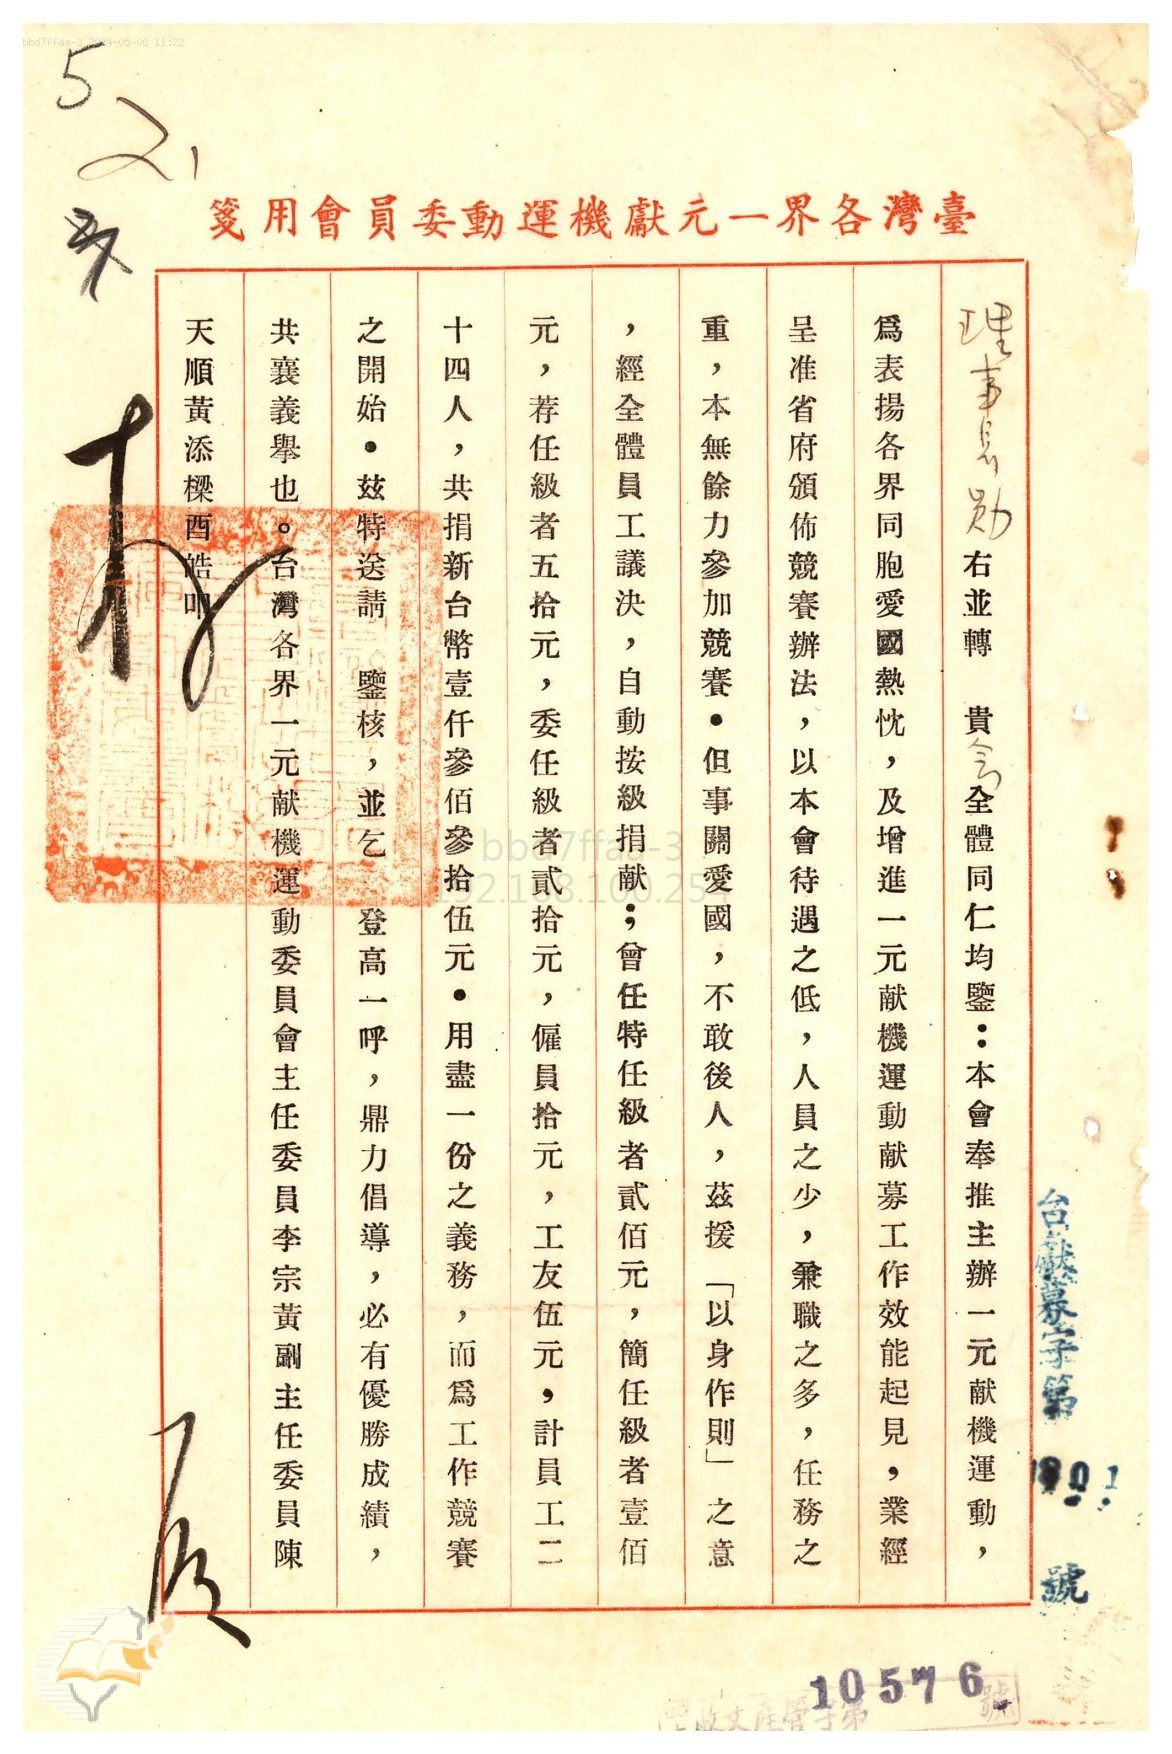 bbd7ffaa-3 2024-05-06 11:22
5
21
臺灣各界一元獻機運動委員會用箋
理事長勛右並轉　貴會全體同仁均鑒：本會奉推主辦一元献機運動，
爲表揚各界同胞愛國熱忱，及增進一元献機運動献募工作效能起見，業經
呈准省府頒佈競賽辦法，以本會待遇之低，人員之少，兼職之多，任務之
重，本無餘力參加競賽．但事關愛國，不敢後人，茲援「以身作則」之意
，經全體員工議決，自動按級捐献；曾任特任級者貳佰元，簡任級者壹佰
元，荐任級者五拾元，委任級者貳拾元，僱員拾元，工友伍元，計員工二
十四人，共捐新台幣壹仟參佰參拾伍元．用盡一份之義務，而爲工作競賽
之開始．茲特送請　鑒核，並乞　登高一呼，鼎力倡導，必有優勝成績，
共襄義舉也。台灣各界一元献機運動委員會主任委員李宗黃副主任委員陳
天順黃添樑酉皓叩
台獻募字第
號
10576
bbd7ffaa-3
192.168.100.254